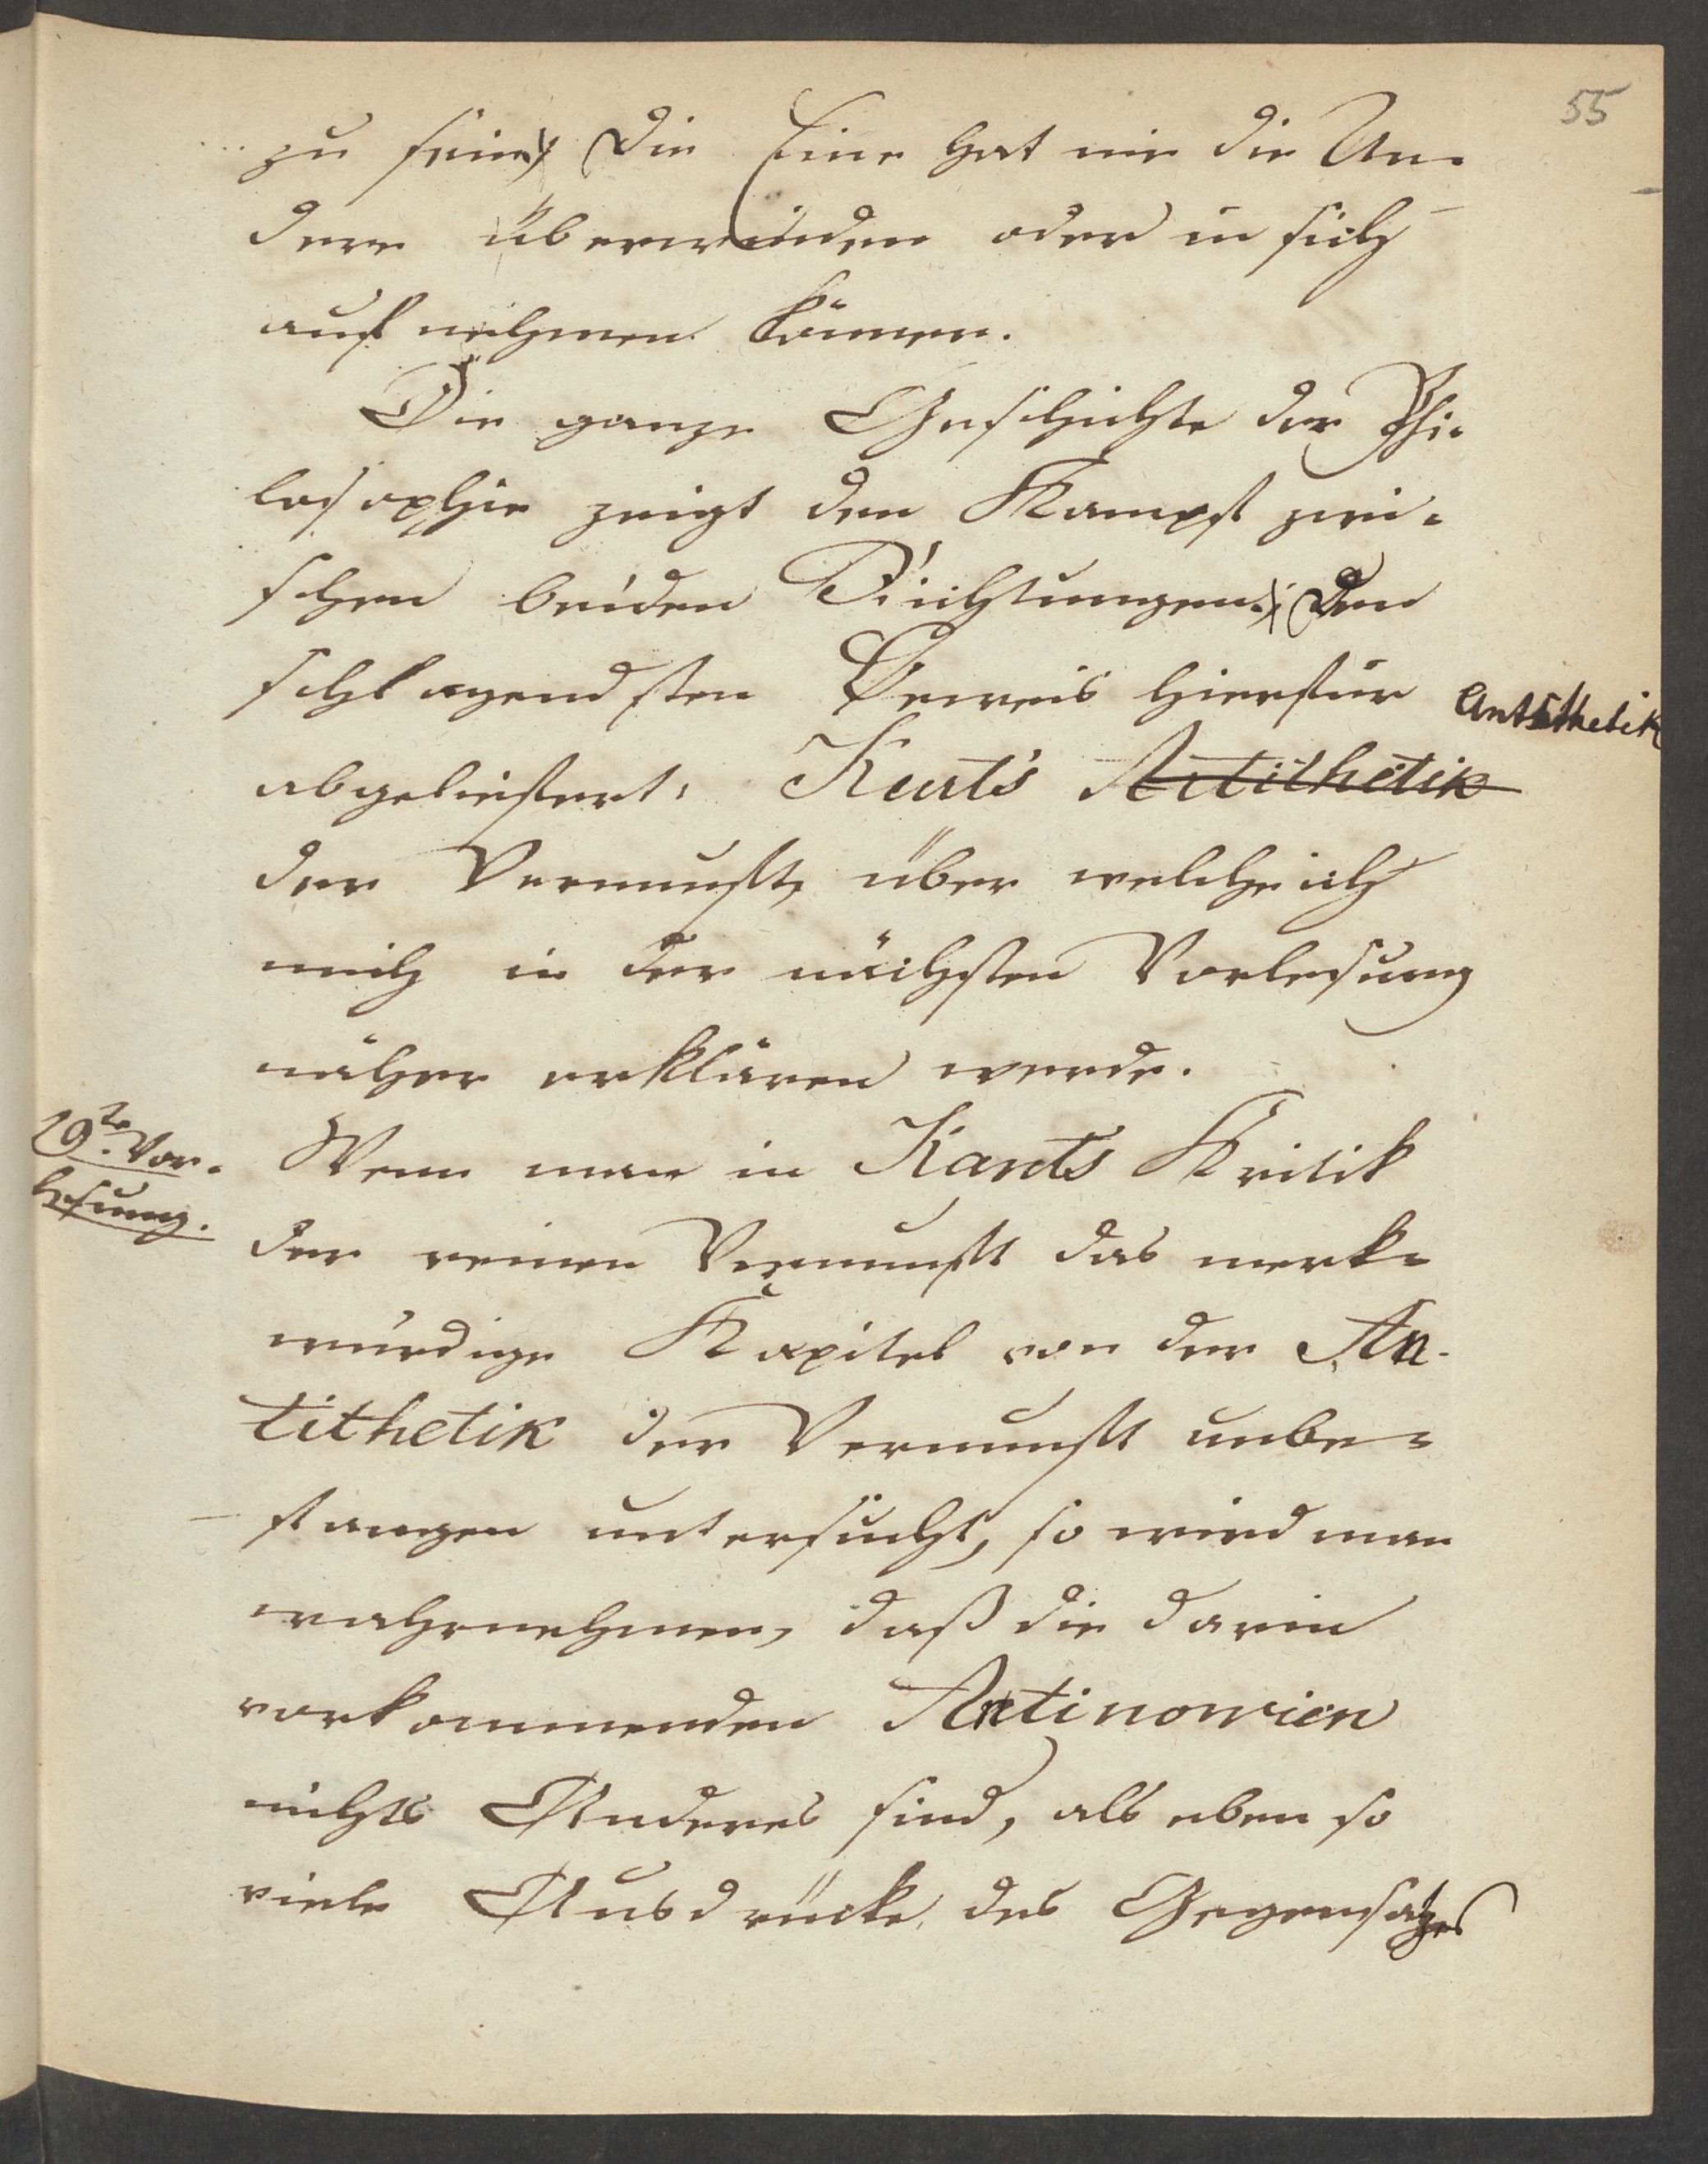 55
zu sein; Die Eine hat nie die An-
dere überwinden oder in sich
aufnehmen können.
Die ganze Geschichte der Phi-
losophie zeigt den Kampf zwi-
schen beiden Richtungen; Den
schlagendsten Beweis hierfür
Antithetik
abgeliefert: Kant's Atithetik
der Vernunft, über welche ich
mich in der nächsten Vorlesung
näher erklären werde.
29te Vor-
lesung.
Wenn man in Kants Kritik
der reinen Vernunft das merk-
würdige Kapitel von der An-
tithetik der Vernunft unbe-
fangen untersucht, so wird man
wahrnehmen, daß die darin
vorkommenden Antinomien
nichts Anderes sind, als eben so
viele Ausdrücke des Gegensatzes